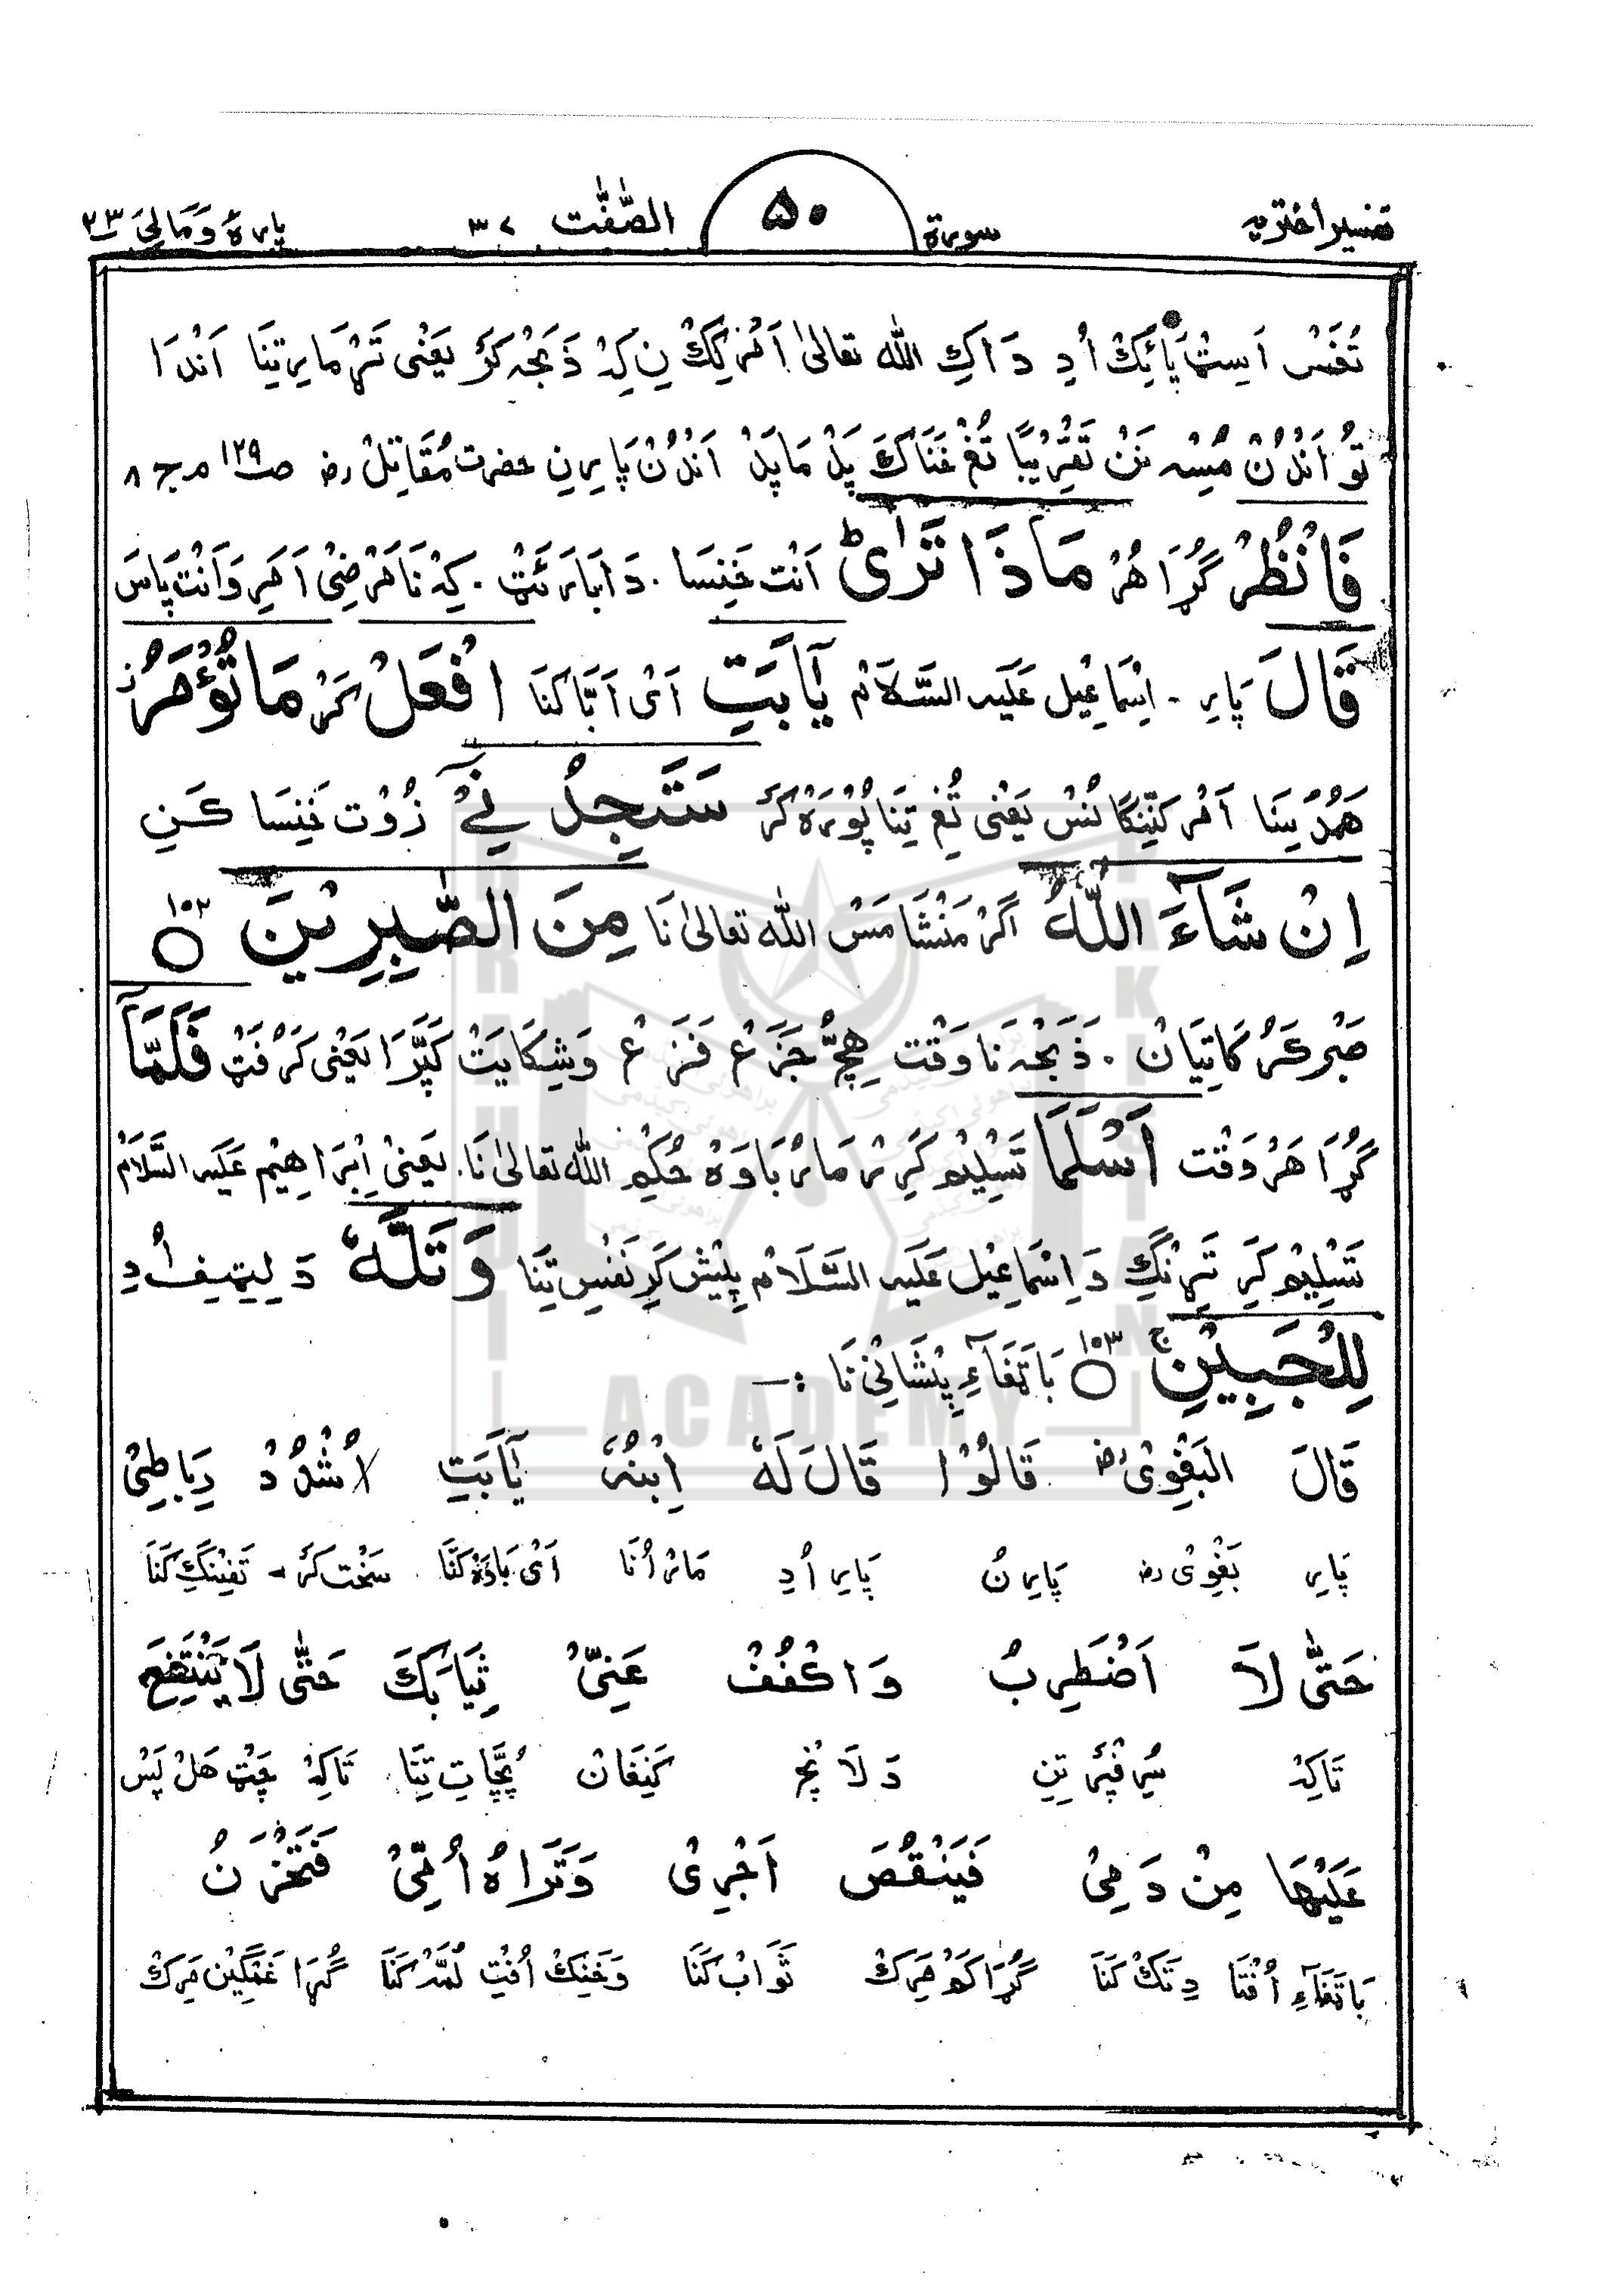 تفسیر اختریہ سورة ۵۰ الصّٰفّٰت ۳۷ پاره وَمَالِیَ ۲۳
تُفَسْ اَسِتْ پَائِکْ اُدِ دَاکِ اللّٰه تعالیٰ اَمُرکِکْ نِ کِہْ ذَبْحہ کَرْ یَعْنٰی تَہْ مَاہِ تِنَا اَنْدَا
تُو اَنْدُنْ مُسِہ نَنْ تَقْرِیْبًا تُغْ خَنَاکَ پَلْ مَاپَلْ اَنْدُنْ پَاہِنِ حضرت مُقَاتِلْ رض صـ١٢٩ م ج ٨
فَانْظُرْ گُڑَا هُرْ مَاذَا تَرٰیؕ اَنْت خَنِسَا . دَ اَبَارَئَٹْ . کِہْ نَا مَرْضِیْ اَہِ وَاَنْتْ پَاسَ
قَالَ پَاہِ - اِسْمَاعِیْل عَلَیہ السَّلَامْ یٰاَبَتِ اَیْ اَبَّا کَنَا افْعَلْ کَرْ مَا تُؤْمَرُ
هَنْدُ بِنَا اَمُرکَنِّنْگَانُسْ یَعْنٰی تُغِ تِنَا پُوْرَهْ کَرْ سَتَجِدُ نِیْٓ زُوْت خَنِسَا کَنِ
اِنْ شَآءَ اللّٰهُ اَگَرْ مَنْشَا مَسْ اللّٰه تعالیٰ نَا مِنَ الصّٰبِرِیْنَ ١٠٢
صَبْر کَرُکَا تِیَانْ . ذَبْحہ نَا وَقْت هِچّ جَزَعْ فَزَعْ وَشِکَایَتْ کَپَّرَا یَعْنٰی کَرْفَٹْ فَلَمَّآ
گُڑَا هَرْ وَقْت اَسْلَمَا تَسْلِیْم کَرِہْ مَارْ بَاوَهْ حُکْمِ اللّٰه تعالیٰ نَا . یَعْنِی اِبْرَاهِیْم عَلَیہ السَّلَامْ
تَسْلِیْم کَرِ تَہْنَگِ وَ اِسْمَاعِیْل عَلَیہ السَّلَامْ پِیْش کَرِ نَفْسِ تِنَا وَتَلَّهٗ دَ لِیٹِفِ اُدِ
لِلْجَبِیْنِ ١٠٣ بَا تَفَآءِ پِیْشَانِیْ نَا :-
قَالَ البَغْوِیْ رض قَالُوْا قَالَ لَهٗ اِبْنُهٗ یٰاَبَتِ اشْدُدْ رِبَاطِیْ
پَاہِ بَغْوِیْ رض پَاہِنُ پَاہِ اُدِ مَارْ اُنَا اَیْ بَاوَهْ کَنَا سَخْت کَرْ - تَفِیْنَگِ کَنَا
حَتّٰی لَا اَضْطَرِبُ وَاکْفُفْ عَنِّیْ ثِیَابَكَ حَتّٰی لَا یَنْتَفِعَ
تَاکِہْ سُرِفَپَّرْ تِنِ وَ لَا پِچْ کَنِفَانْ پُچَّاتِ تِنَا تَاکِہْ چَٹْ هَلْ پَسْ
عَلَیْهَا مِنْ دَمِیْ فَیَنْقُصَ اَجْرِیْ وَتَرَاهُ اُمِّیْ فَتَحْزَنُ
بَا تَفَآءِ اُفْتَا دِتَكْ کَنَا گُڑَا کَمْ مَرِكْ ثَوَابْ کَنَا وَخَنِكْ اُفْتِ لُمَّہْ کَنَا گُڑَا غَمْگِیْن مَرِكْ